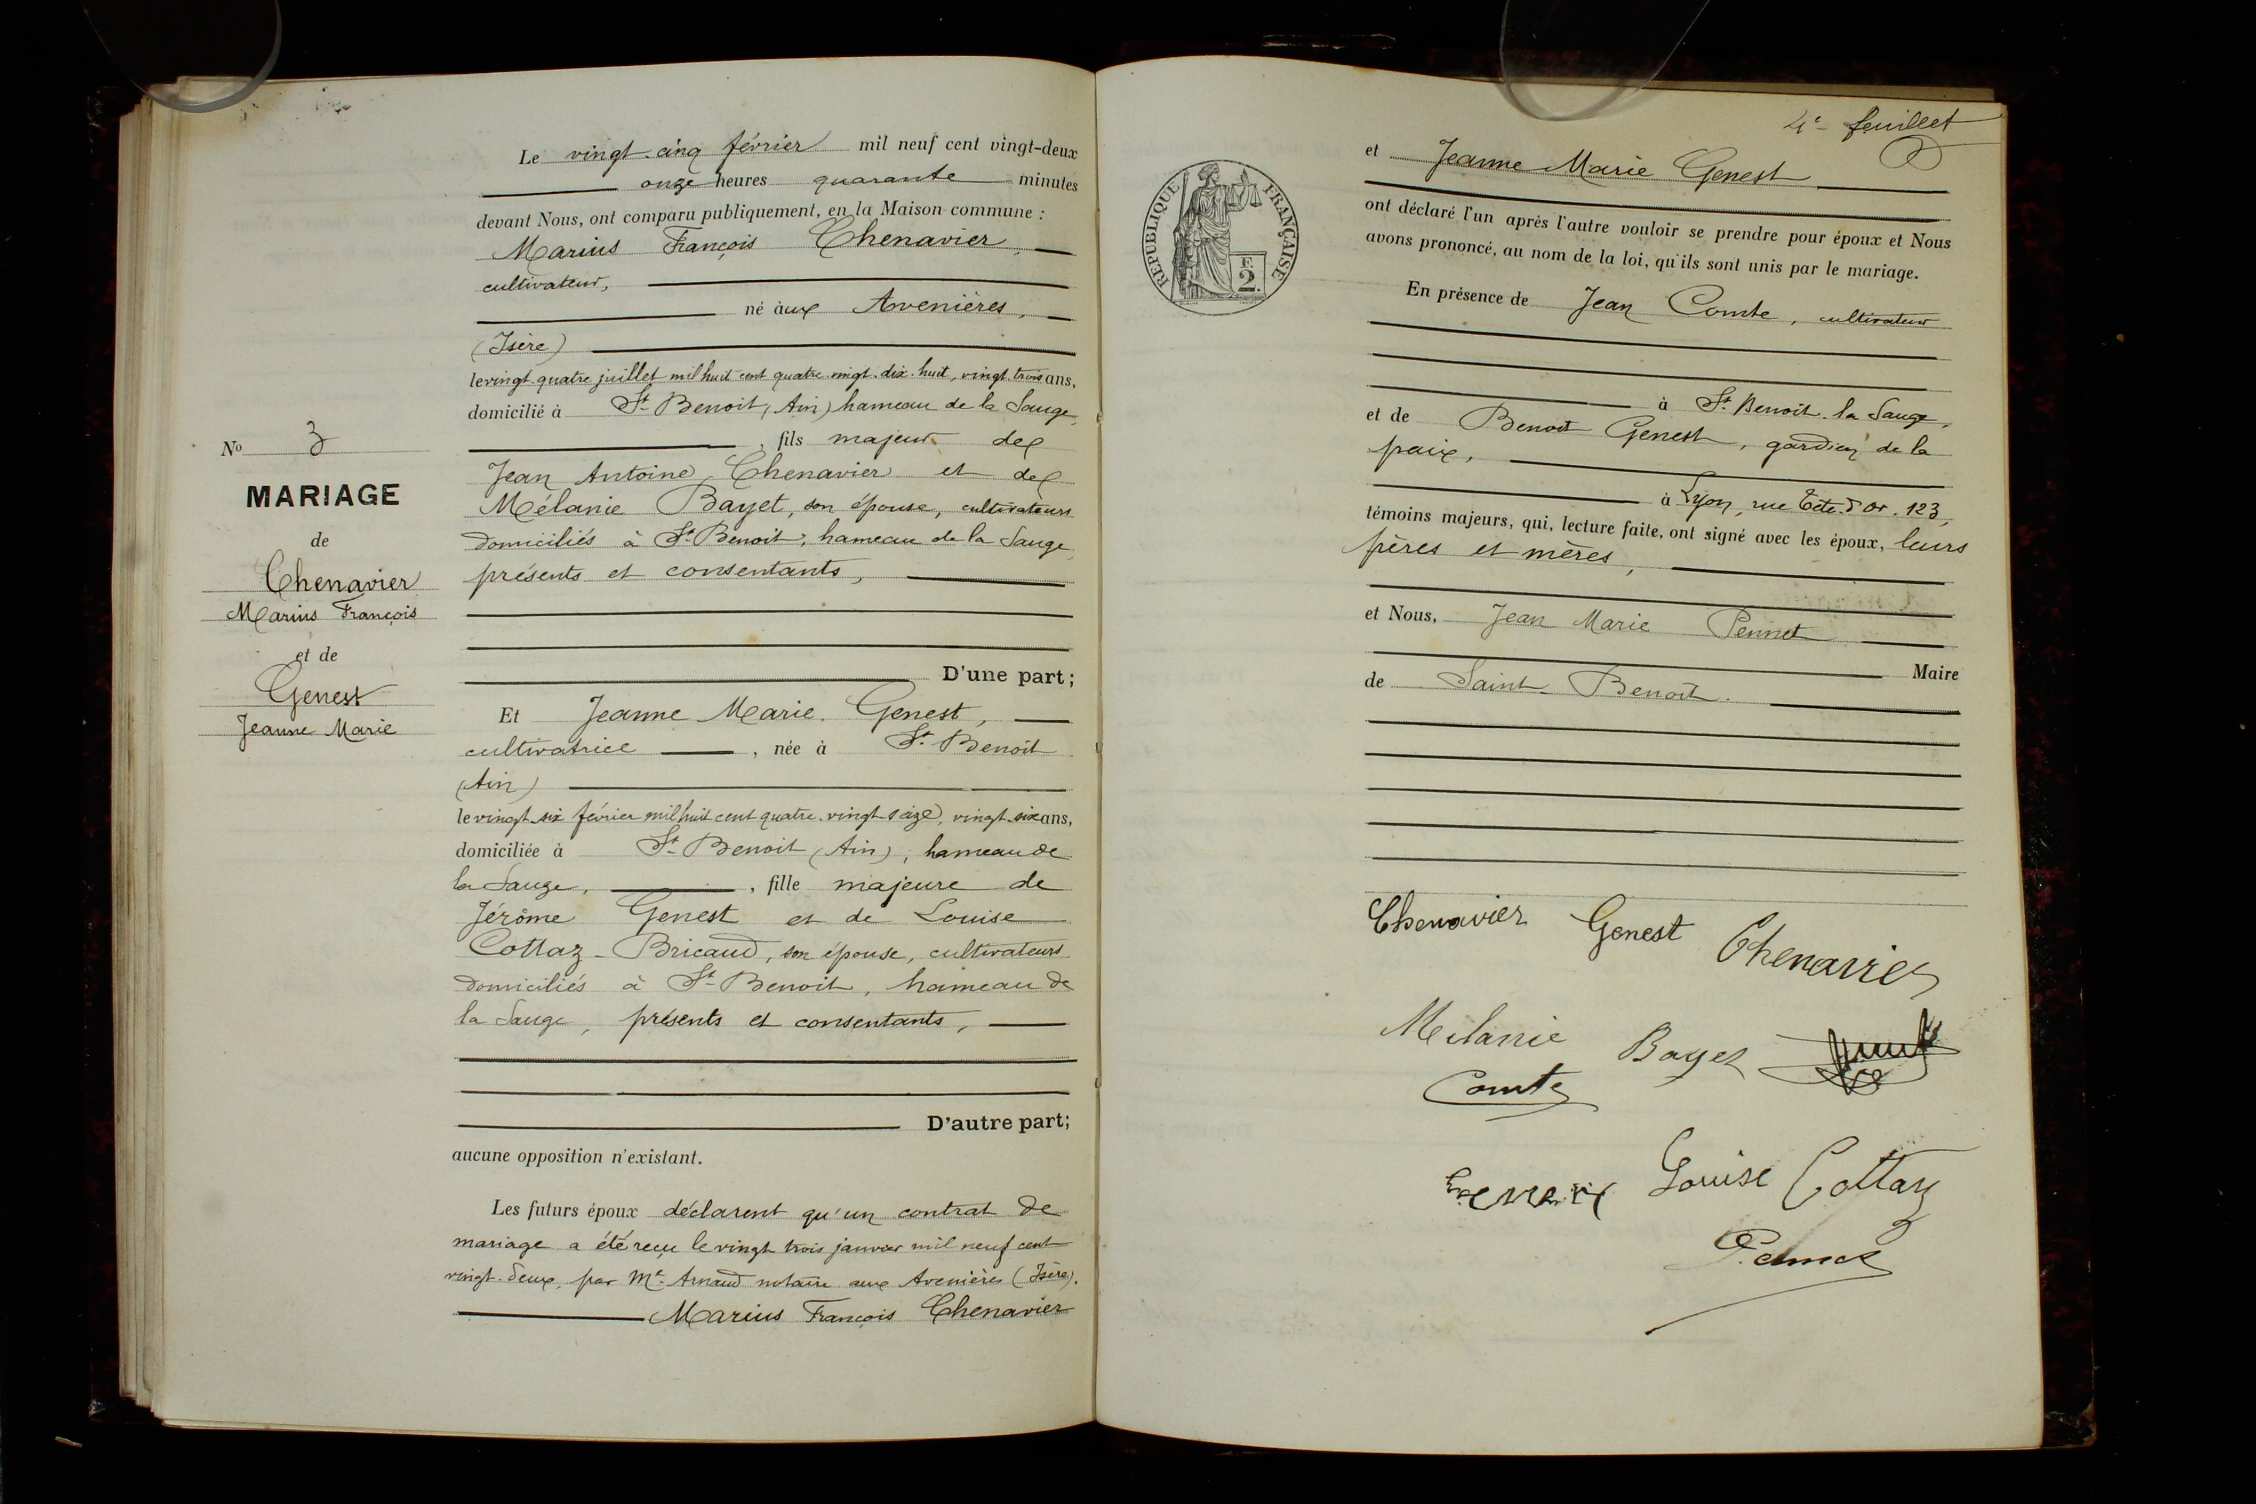 Le vingt-cinq février mil neuf cent vingt-deux
onze heures quarante minutes
devant Nous, ont comparu publiquement, en la Maison commune :
Marius François Chenavier,
cultivateur,
né àux Avenières,
(Isère)
le vingt quatre juillet mil huit cent quatre-vingt-dix-huit, vingt-trois ans,
domicilié à St Benoit, (Ain) hameau de la Sauge,
, fils majeur de
Jean Antoine Chenavier et de
Mélanie Bayet, son épouse, cultivateurs
domiciliés à St Benoit, hameau de la Sauge,
présents et consentants,
D'une part;
Et Jeanne Marie Genest,
cultivatrice , née à St Benoît
(Ain)
le vingt-six février mil huit cent quatre-vingt-seize, vingt-six ans,
domiciliée à St Benoit (Ain), hameau de
la Sauge, , fille majeure de
Jérôme Genest et de Louise
Cottaz-Bricaud, son épouse, cultivateurs
domiciliés à St Benoit, hameau de
la Sauge, présents et consentants,
D'autre part;
aucune opposition n'existant.
Les futurs époux déclarent qu'un contrat de
mariage a été reçu le vingt trois janvier mil neuf cent
vingt-deux, par Me Arnaud notaire aux Avenières (Isère).
Marius François Chenavier
No 3
MARIAGE
de
Chenavier
Marius François
et de
Genest
Jeanne Marie
4e feuillet
RÉPUBLIQUE FRANÇAISE
F.
2.
et Jeanne Marie Genest
ont déclaré l'un après l'autre vouloir se prendre pour époux et Nous
avons prononcé, au nom de la loi, qu'ils sont unis par le mariage.
En présence de Jean Comte, cultivateur
à St Benoit-la Sauge,
et de Benoit Genest, gardien de la
paix,
à Lyon, rue Tête-d'Or, 123,
témoins majeurs, qui, lecture faite, ont signé avec les époux, leurs
pères et mères,
et Nous, Jean Marie Pennet
Maire
de Saint-Benoit.
Chenavier Genest Chenavier
Melanie Bayet
Comte
Louise Cottaz
Pennet